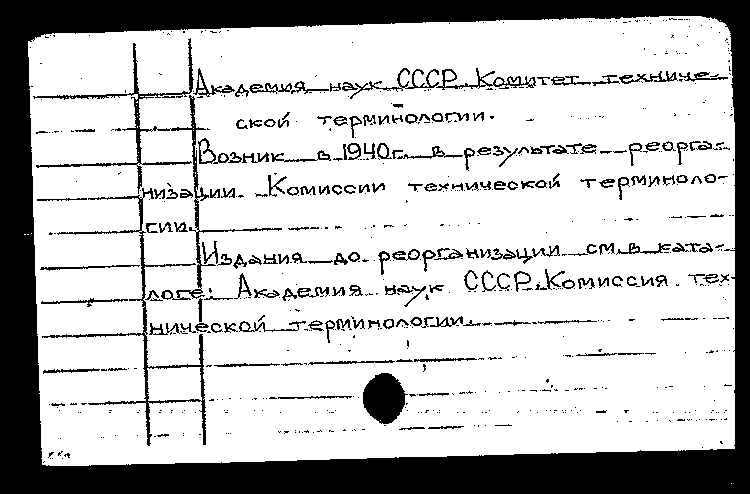 Академия наук СССР. Комитет техниче-
ской терминологии.
Возник в 1940г. в результате реорга-
низации Комиссии технической терминоло-
гии.
Издания до реорганизации см. в ката-
логе: Академия наук СССР. Комиссия тех-
нической терминологии.